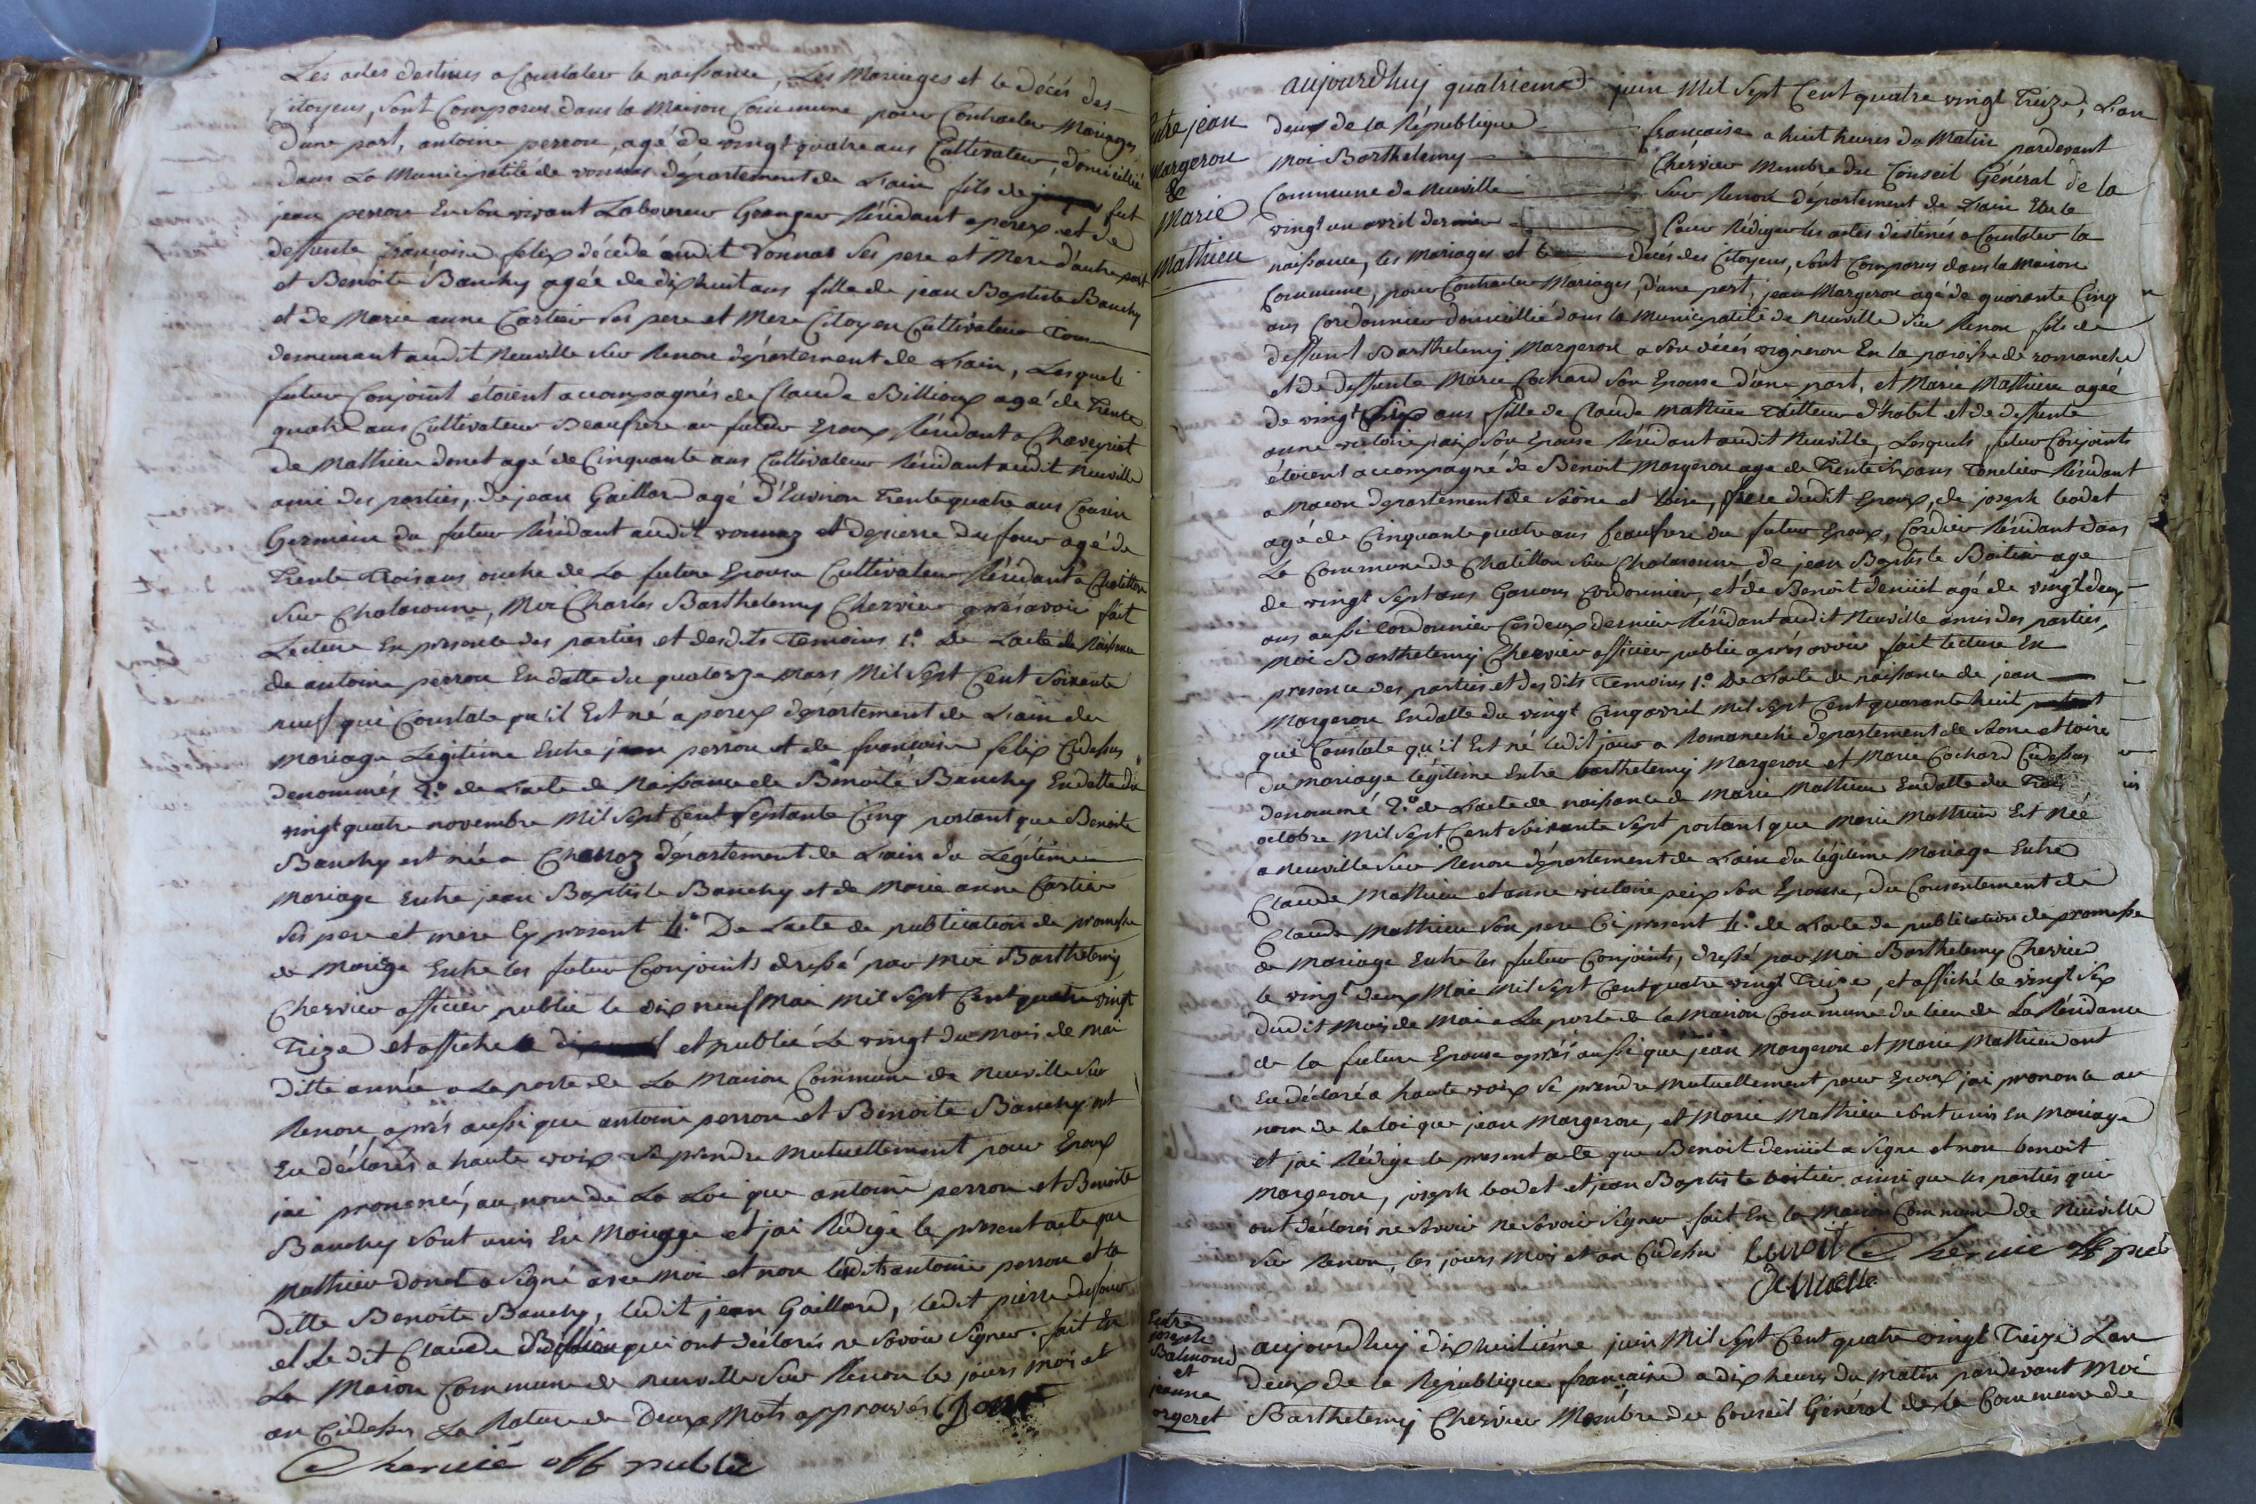 Les actes destinés a Constater la naissance, Les Mariages et le décés des
Citoyens, sont Comparus dans la Maison Commune pour Contracter Mariages
d'une part, antoine perron, agé de vingt quatre ans Cultivateur, domicilié
dans La Municipalité de vonnas département de L'ain fils de feut
jean perron En son vivant Laboureur Granger Résidant a perex et de
deffunte francoise felix décédé audit vonnas ses pere et Mere d'autre part
et Benoite Banchy agée de dix huit ans fille de jean Baptiste Banchy
et de Marie anne Cartier ses pere et Mere Citoyen Cultivateur Tous
demeurant audit Neuville sur Renon département de L'ain, Lesquels
futur Conjoint étoient accompagnés de Claude Billioux agé de Trente
quatre ans Cultivateur Beaufrere au futur Epoux Résidant a Chaveyriat
de Mathieu donet agé de Cinquante ans Cultivateur Résidant audit Neuville
ami des parties, de jean Gaillard agé d'Environ Trente quatre ans Cousin
Germain du futur Résidant audit vonnas et de pierre dufour agé de
Trente Trois ans oncle de La future Epouse Cultivateur Résidant a Chatillon
sur Chalaronne, Moi Charles Barthelemy Chervier après avoir fait
Lecture En presence des parties et desdits Temoins 1.° De L'acte de Naissance
de antoine perron En datte du quatorze Mars Mil Sept Cent Soixante
neuf qui Constate qu'il Est né a perex département de L'ain du
Mariage Legitime Entre jean perron et de francoise felix Cidessus
denommés 2.° de L'acte de Naissance de Benoite Banchy En datte du
vingt quatre novembre Mil Sept Cent Septante Cinq portant que Benoite
Banchy est née a Chanoz département de L'ain du Légitime
Mariage Entre jean Baptiste Banchy et de Marie anne Cartier
ses pere et mere Cy present 4.° De L'acte de publication de promesse
de Mariage Entre les futur Conjoints dressé par Moi Barthelemy
Chervier officier public le dix neuf Mai Mil Sept Cent quatre vingt
Treize et affiché et publié Le vingt du Mois de Mai
ditte année a La porte de La Maison Commune de Neuville sur
Renon, après aussi que antoine perron et Benoite Banchy ont
Eu déclarés a haute voix se prendre Mutuellement pour Epoux
jai prononcé, au nom de La Loi que antoine perron et Benoite
Banchy sont unis En Mariage et jai Rédigé le present acte que
Mathieu donet a signé avec Moi et non ledit antoine perron et la
ditte Benoite Banchy, ledit jean Gaillard, ledit pierre dufour
et Le dit Claude Billioux qui ont déclarés ne savoir signer. fait En
La Maison Commune de Neuville sur Renon les jours mois et
an Cidessus La Rature de Deux Mots approuvés Donet
Chervié off public
Entre jean
Margeron
&
Marie
Mathieu
aujourd'huy quatrieme juin Mil Sept Cent quatre vingt Treize, L'an
deux de la République française a huit heures du Matin pardevant
Moi Barthelemy Chervier Membre du Conseil Général de la
Commune de Neuville sur Renon département de L'ain Elu le
vingt un avril dernier Pour Rédiger les actes destinés a Constater la
naissance, les Mariages et le décés des Citoyens, sont Comparus dans la Maison
Commune, pour Contracter Mariages, d'une part, jean Margeron agé de quarante Cinq
ans Cordonnier domicillié dans la Municipalité de Neuville sur Renon fils de
deffunt Barthelemy Margeron a son décés vigneron En la paroisse de romaneche
et de deffunte Marie Cochard son Epouse d'une part, et Marie Mathieu agée
de vingt six ans fille de Claude Mathieu Tailleur d'habit et de deffunte
anne victoire paix son Epouse Résidant audit Neuville, Lesquels futur Conjoints
étoient accompagné de Benoit Margeron age de Trente six ans Tonnelier Résidant
a Macon departement de Saône et Loire, frere dudit Epoux, de joseph bodet
agé de Cinquante quatre ans Beaufrere du futur Epoux, Cordier Résidant dans
La Commune de Chatillon sur Chalaronne, de jean Baptiste Boitier age
de vingt sept ans Garcons Cordonnier, et de Benoit denüit agé de vingt deux
ans aussi Cordonnier Ces deux dernier Résidant audit Neuville amis des parties,
Moi Barthelemy Chervier officier public après avoir fait lecture En
presence des parties et des dits Temoins 1.° De L'acte de naissance de jean
Margeron En datte du vingt Cinq avril Mil Sept Cent quarante huit
qui Constate qu'il Est né ledit jour a Romaneche departement de Saone et Loire
Du mariage légitime Entre barthelemy Margeron et Marie Cochard Cidessus
denommé 2.° de L'acte de naissance de Marie Mathieu En datte du Trois
octobre Mil Sept Cent Soixante Sept portant que Marie Mathieu Est Née
a Neuville sur Renon département de L'ain du légitime Mariage Entre
Claude Mathieu et anne victoire peix son Epouse, du Consentement de
Claude Mathieu son pere Ci present 4.° de L'acte de publication de promesse
de Mariage Entre les futur Conjoints, dressé par Moi Barthelemy Chervier
le vingt deux Mai Mil Sept Cent quatre vingt Treize, et affiché le vingt six
dudit Mois de Mai a La porte de la Maison Commune du lieu de La Résidance
de la future Epouse après aussi que jean Margeron et Marie Mathieu ont
Eu déclaré a haute voix se prendre Mutuellement pour Epoux jai prononcé au
nom de la loi que jean Margeron, et Marie Mathieu sont unis En Mariage
et jai Rédigé le present acte que Benoit denüit a signé et non benoit
Margeron, joseph bodet et jean Baptiste boitier ainsi que les parties qui
ont déclarés ne savoir signer fait En la Maison Commune de Neuville
sur Renon, les jours Mois et an Cidessus benoit Chervié off public
Denuelle
Entre
joseph
Balmond
et
jeanne
orgeret
aujourd'huy dix huitiéme juin Mil Sept Cent quatre vingt Treize L'an
Deux de la République française a dix heures du Matin pardevant Moi
Barthelemy Chervier Membre du Conseil Général de la Commune de